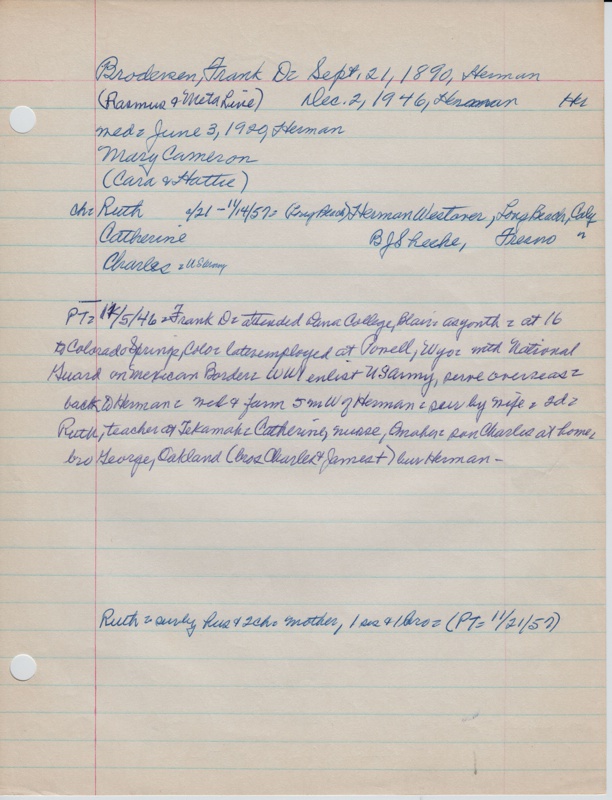 Brodersen, Frank D= Sept. 21, 1890, Herman
(Rasmus & Meta Line) Dec. 2, 1946, Herman
med= June 3, 1920, Herman
Mary Cameron
(Card & Hattie)
ch= Ruth 2/21 - 11/14/57= (Long Beach) Herman Westover, Long Beach, Calif
Catherine B J Sheehe, Fresno "
Charles = US Army
PT= 12/5/46 = Frank D= attended Dana College, Blair= as youth = at 16
to Colorado Springs, Colo= later employed at Powell, Wyo= with National
Guard on Mexican Border= WWI enlist US Army, serve overseas=
back to Herman= wed & farm 5 m W of Herman= surv by wife = 2d=
Ruth, teacher at Tekamah= Catherine, nurse, Omaha= son Charles at home=
bro George, Oakland (bros Charles & James +) bur Herman -
Ruth = surv by hus & 2ch= mother, 1 sis & 1 bro = (PT= 11/21/57)